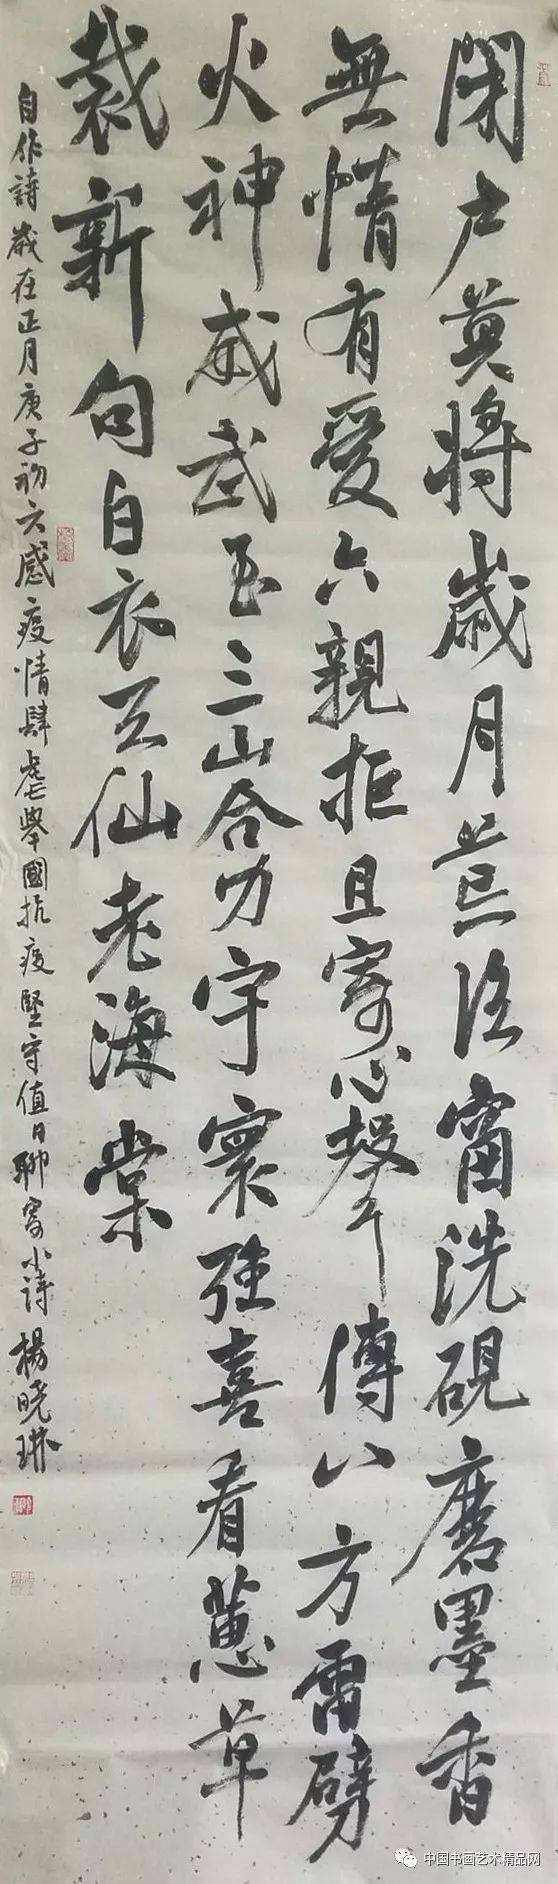 閉户莫將歲月荒臨窗洗硯磨墨香
無情有愛六親拒且寄心聲傳八方雷劈
火神威武至三山合力宇寰強喜看蕙草
裁新句白衣互仙老海棠
自作詩歲在正月庚子初六感疫情肆虐舉國抗疫堅守值日聊寄小詩楊晓琳
中国书画艺术精品网